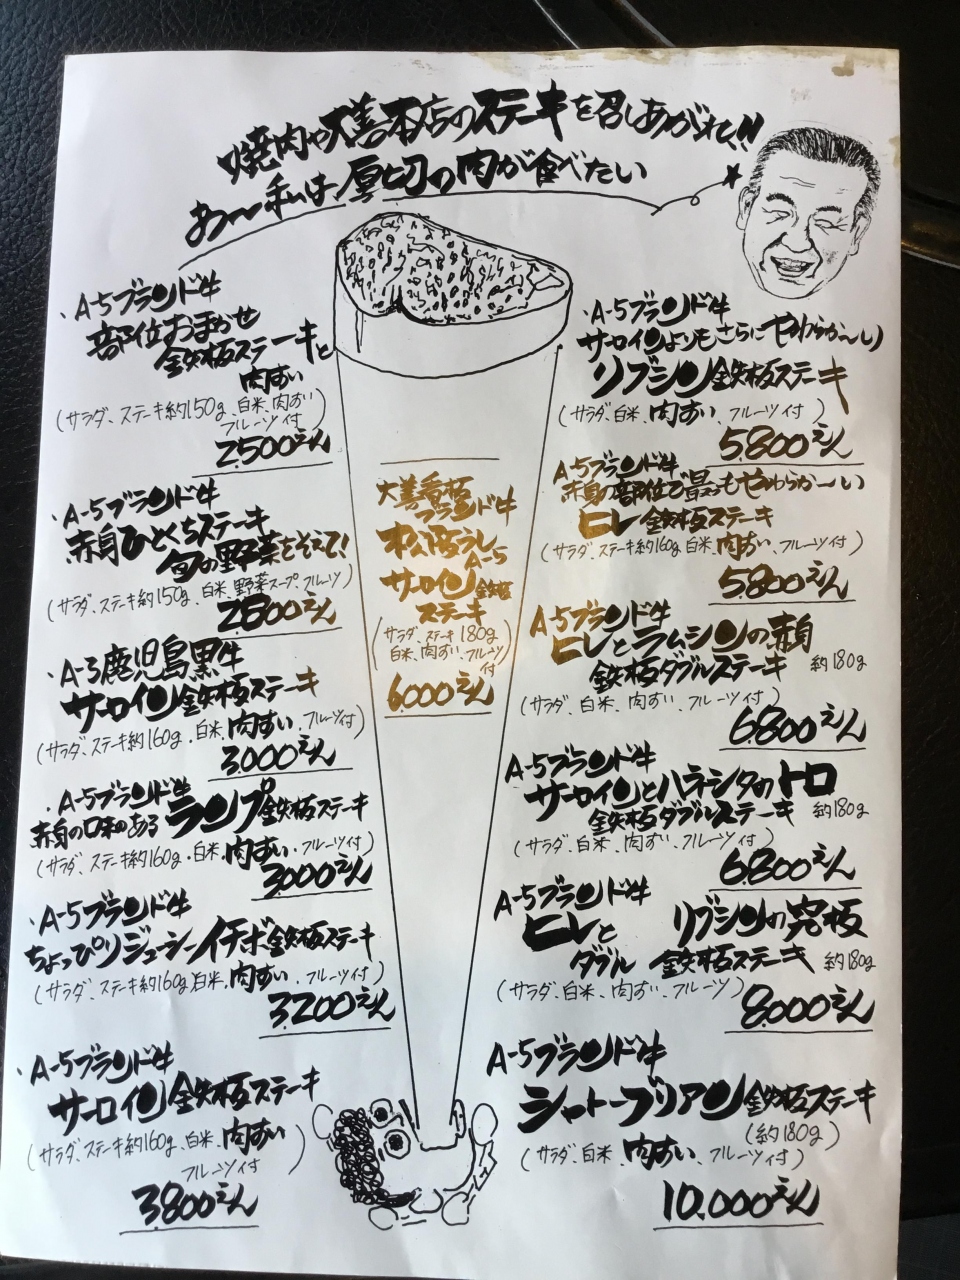 焼肉や大善本店のステーキを召しあがれ!!
あ〜私は厚切の肉が食べたい
・A-5ブランド牛
部位おまかせ
鉄板ステーキと
肉すい
(サラダ、ステーキ約150g、白米、肉すい
フルーツ付)
2,500えん
・A-5ブランド牛
赤身ひとくちステーキ
旬の野菜をそえて!
(サラダ、ステーキ約150g、白米、野菜スープ、フルーツ)
2,800えん
A-3鹿児島黒牛
サーロイン鉄板ステーキ
(サラダ、ステーキ約160g、白米、肉すい、フルーツ付)
3,000えん
・A-5ブランド牛
赤身の口味のある ランプ鉄板ステーキ
(サラダ、ステーキ約160g、白米、肉すい、フルーツ付)
3,000えん
・A-5ブランド牛
ちょっぴりジューシーイチボ鉄板ステーキ
(サラダ、ステーキ約160g、白米、肉すい、フルーツ付)
3,200えん
・A-5ブランド牛
サーロイン鉄板ステーキ
(サラダ、ステーキ約160g、白米、肉すい
フルーツ付)
3,800えん
大善看板
ブランド牛
松阪うし
A-5
サーロイン鉄板
ステーキ
(サラダ、ステーキ180g
白米、肉すい、フルーツ
付)
6,000えん
・A-5ブランド牛
サーロインよりもさらにやわらか〜い
リブシン鉄板ステーキ
(サラダ、白米、肉すい、フルーツ付)
5,800えん
A-5ブランド牛
赤身の部位で最ももやわらか〜い
ヒレ鉄板ステーキ
(サラダ、ステーキ約160g、白米、肉すい、フルーツ付)
5,800えん
A-5ブランド牛
ヒレとラムシンの赤身
鉄板ダブルステーキ 約180g
(サラダ、白米、肉すい、フルーツ付)
6,800えん
A-5ブランド牛
サーロインとハネシタのトロ
鉄板ダブルステーキ 約180g
(サラダ、白米、肉すい、フルーツ付)
6,800えん
A-5ブランド牛
ヒレと リブシンの究極
ダブル 鉄板ステーキ 約180g
(サラダ、白米、肉すい、フルーツ)
8,000えん
A-5ブランド牛
シャトーブリアン鉄板ステーキ
(約180g)
(サラダ、白米、肉すい、フルーツ付)
10,000えん